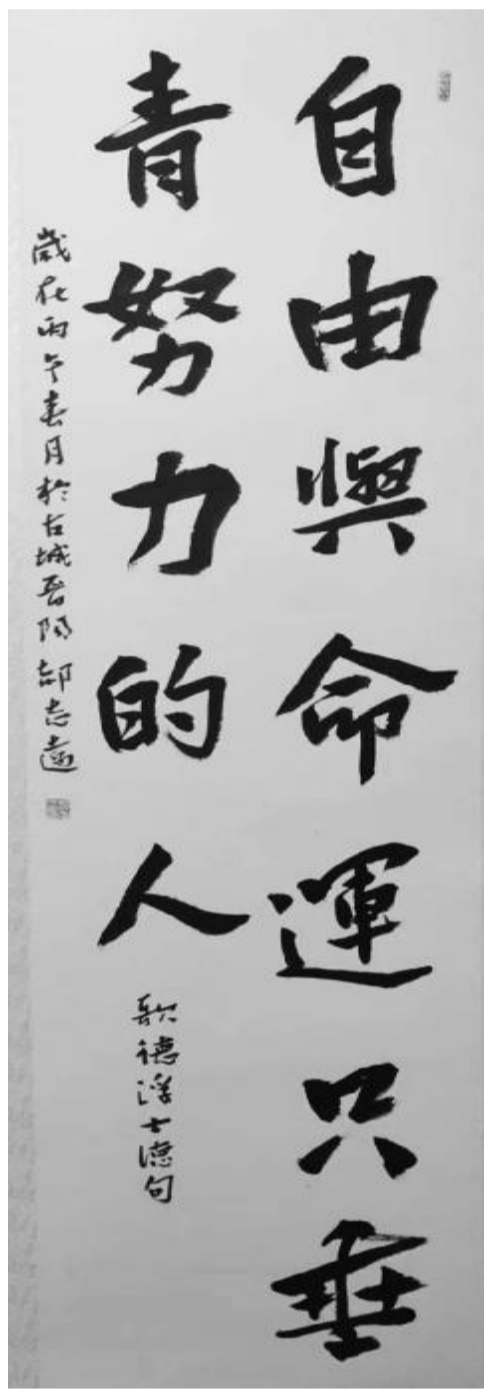 自由與命運只垂
青努力的人
歌德浮士德句
歲在丙午春月於古城晉陽郝志遠